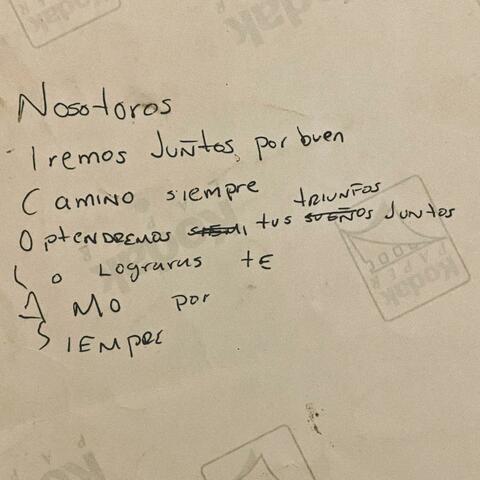 Nosotoros
Iremos Juñtos, por buen
Camino siempre
triunfos
Optendremos siemi tus sueños Juntos
Lo Lograras te
Amo por
Siempre
Kodak
Kodak
Kodak
Kodak
PAPER
Kodak